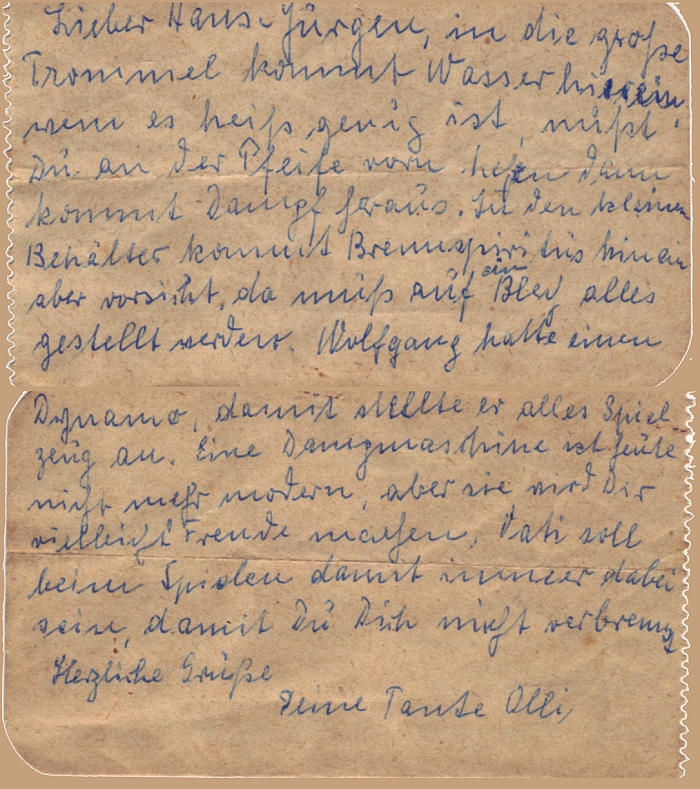 Lieber Hans-Jürgen, in die große
Trommel kommt Wasser hinein,
wenn es heiß genug ist, mußt
Du an der Pfeife vorn helfen dann
kommt Dampf heraus. In den kleinen
Behälter kommt Brennspiritus hinein
aber vorsicht, da muß auf ein Blech alles
gestellt werden. Wolfgang hatte einen
Dynamo, damit stellte er alles Spiel-
zeug an. Eine Dampmaschine ist heute
nicht mehr modern, aber sie wird Dir
vielleicht Freude machen. Vati soll
beim Spielen damit immer dabei
sein, damit Du Dich nicht verbrennst
Herzliche Grüße
Deine Tante Olli,